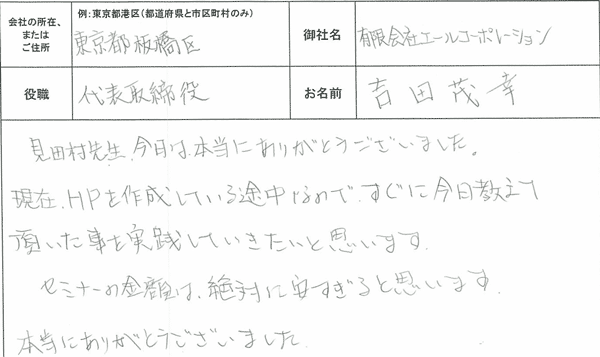 会社の所在、
または
ご住所
例：東京都港区（都道府県と市区町村のみ）
東京都板橋区
御社名
有限会社エールコーポレーション
役職
代表取締役
お名前
吉田茂幸
見田村先生、今日は、本当にありがとうございました。
現在、HPを作成している途中なので、すぐに今日教えて
頂いた事を実践していきたいと思います。
セミナーの金額は、絶対に安すぎると思います。
本当にありがとうございました。